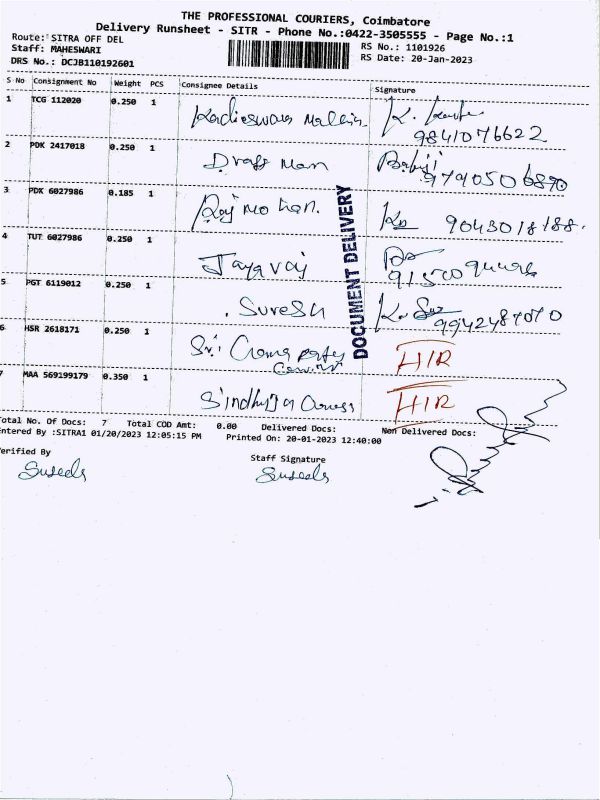 THE PROFESSIONAL COURIERS, Coimbatore
Delivery Runsheet - SITR - Phone No.:0422-3505555 - Page No.:1
Route: SITRA OFF DEL
Staff: MAHESWARI
RS No.: 1101926
DRS No.: DCJB110192601
RS Date: 20-Jan-2023
S No Consignment No Weight PCS Consignee Details Signature
1 TCG 112020 0.250 1 K.
9841076622
2 PDK 2417018 0.250 1 Babuji
9790506890
3 PDK 6027986 0.185 1 Raj Mohan. 9043018188.
4 TUT 6027986 0.250 1 Jayaraj
5 PGT 6119012 0.250 1 Suresh
9942487070
6 HSR 2618171 0.250 1 Sri H/R
7 MAA 569199179 0.350 1 H/R
DOCUMENT DELIVERY
Total No. Of Docs: 7 Total COD Amt: 0.00 Delivered Docs: Non Delivered Docs:
Entered By :SITRA1 01/20/2023 12:05:15 PM Printed On: 20-01-2023 12:40:00
Verified By Staff Signature